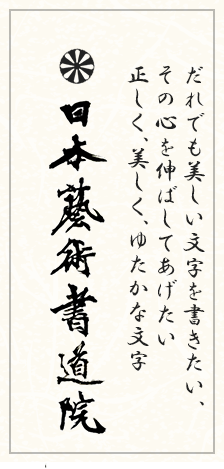 だれでも美しい文字を書きたい、
その心を伸ばしてあげたい
正しく、美しく、ゆたかな文字
日本藝術書道院